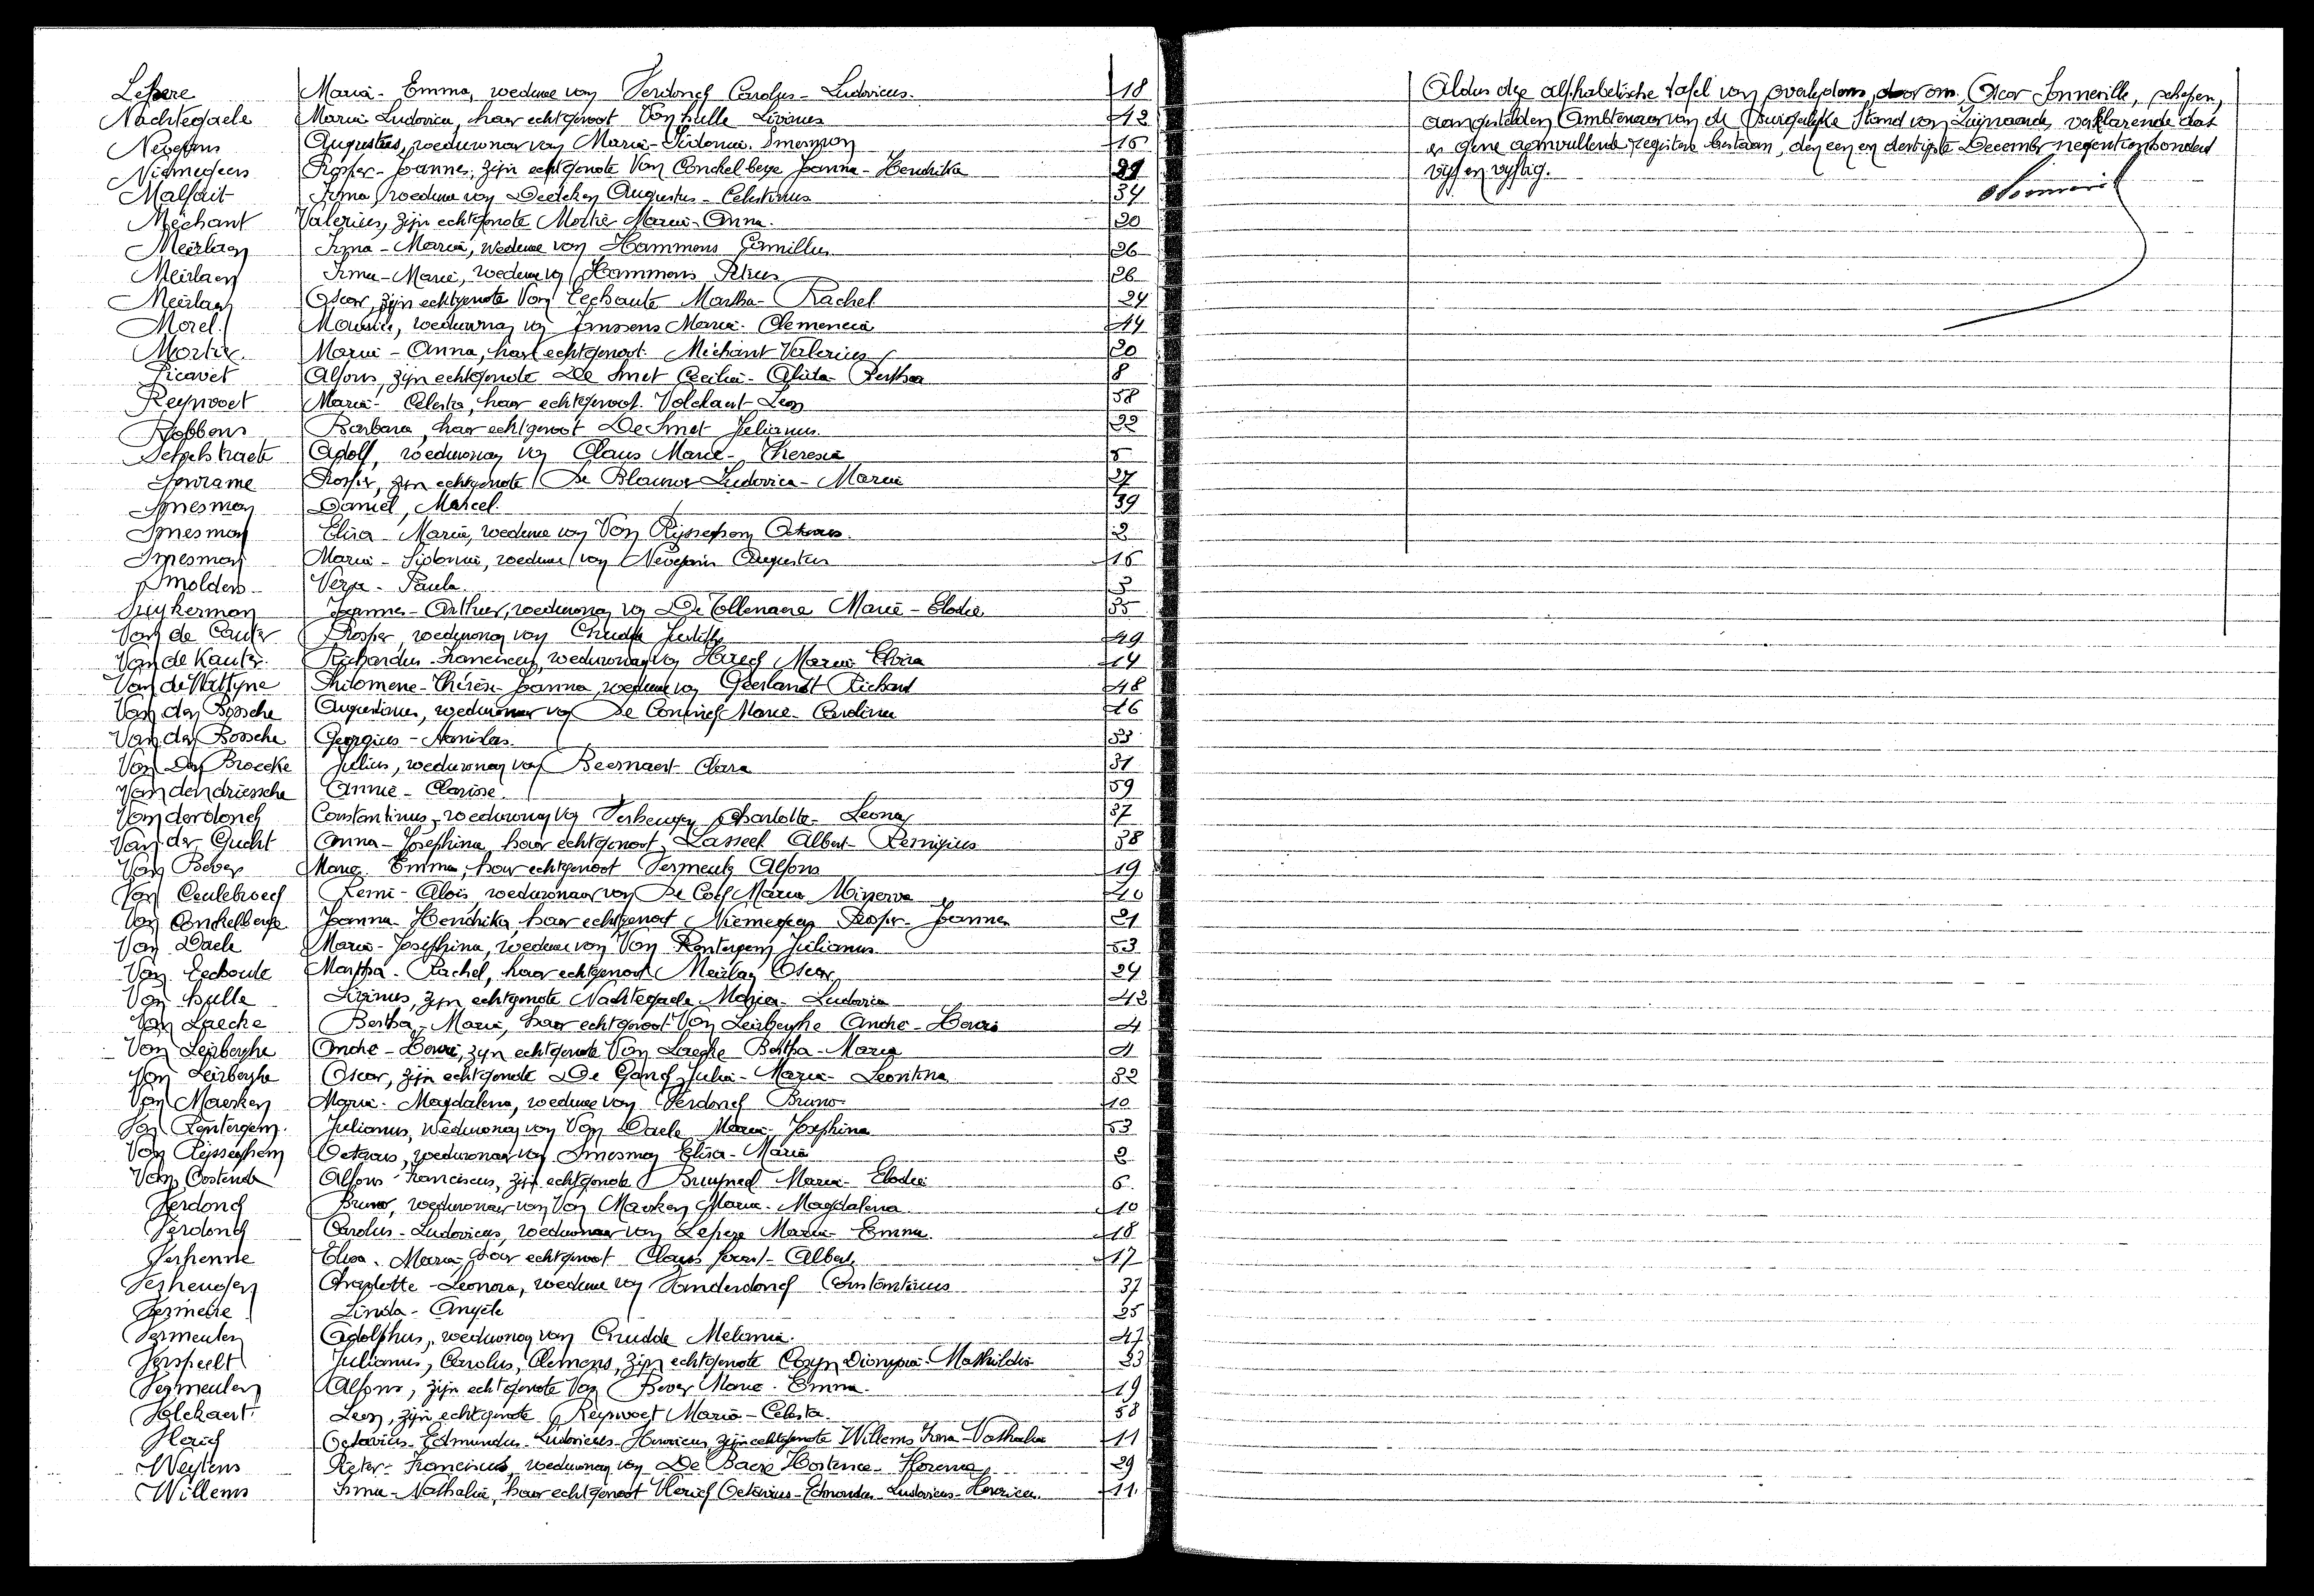 Lepere Maria - Emma, weduwe van Verdonck Carolus - Ludovicus. 18
Nachtegaele Maria Ludovica, haar echtgenoot Van hulle Livinus 42
Nevejans Augustus, weduwnaar van Maria - Sidonia. Smesman 15
Niemegeers Prosper - Joannes, zijn echtgenote Van Conckelberge Joanna - Hendrika 21
Malfait Irma, weduwe van Augustus - Celestinus 34
Méchant Valerius, zijn echtgenote Mortier Maria - Anna. 20
Meirlaen Irma - Maria, weduwe van Hammens Camillus 26
Meirlaen Irma - Maria, weduwe van Hammens Petrus 26
Meirlaen Oscar, zijn echtgenote Van Eechaute Martha - Rachel 24
Morel Maurice, weduwnaar van Janssens Maria - Clemencia 44
Mortier Maria - Anna, haar echtgenoot. Méchant Valerius 20
Picavet Alfons, zijn echtgenote De Smet Cecilia - Alida - Bertha 8
Reynvoet Maria - Celesta, haar echtgenoot. Volckaert Leon 58
Robbens Barbara, haar echtgenoot De Smet Julianus. 22
Schelstraete Adolf, weduwnaar van Claus Marie - Theresia 5
Prosper, zijn echtgenote De Blauwer Ludovica - Maria 27
Smesman Daniel, Marcel. 39
Smesman Elisa - Maria, weduwe van Van Rijsseghem Octavus. 2
Smesman Maria - Sidonia, weduwe van Nevejans Augustus 15
Smolders Vera - Paula 3
Suykerman Joannes - Arthur, weduwnaar van De Tollenaere Maria - Elodie 35
Van de Cauter Prosper, weduwnaar van Crudde Judith 49
Van de Kauter. Richardus - Franciscus, weduwnaar van Maria Elvira 14
Van de Wattyne Philomene - Thérèse - Joanna, weduwe van Geerlandt Richard 48
Van den Bossche Augustinus, weduwnaar van De Coninck Marie - Carolina 46
Van den Bossche Georgius - Stanislas. 33
Van Den Broecke Julius, weduwnaar van Beernaert Clara 31
Vandendriessche Annie - Clarisse. 59
Vanderdonck Constantinus, weduwnaar van Verheugen Charlotte - Leona 37
Van der Gucht Anna - Josephina, haar echtgenoot, Lasseel Albert - Remigius 38
Van Bever Marie Emma, haar echtgenoot Vermeulen Alfons 19
Van Ceulebroeck Remi - Alois, weduwnaar van De Cock Maria Minerva 40
Van Conckelberge Joanna - Hendrika, haar echtgenoot Niemegeers Prosper - Joannes 21
Van Daele Maria - Josephina, weduwe van Van Renterghem Julianus 53
Van Eechoute Martha - Rachel, haar echtgenoot Meirlaen Oscar 24
Van hulle Livinus, zijn echtgenote Nachtegaele Maria - Ludovica 42
Van Laecke Bertha - Maria, haar echtgenoot Van Leirberghe André - Henri 4
Van Leirberghe André - Henri, zijn echtgenote Van Laecke Bertha - Maria 4
Van Leirberghe Oscar, zijn echtgenote De Ganck Julia - Maria - Leontina 32
Van Maerken Maria - Magdalena, weduwe van Verdonck Bruno 10
Van Rentergem. Julianus, weduwnaar van Van Daele Maria - Josephina 53
Van Rijsseghem Octavus, weduwnaar van Smesman Elisa - Maria 2
Van Oostende Alfons - Franciscus, zijn echtgenote Bruyneel Maria - Elodie 6
Verdonck Bruno, weduwnaar van Van Maerken Maria. Magdalena 10
Verdonck Carolus - Ludovicus, weduwnaar van Lepere Maria - Emma. 18
Verhenne Elisa - Maria, haar echtgenoot Claus Joost - Albert 17
Verheugen Charlotte - Leonora, weduwe van Vanderdonck Constantinus 37
Vermeire Linda - Angèle 25
Vermeulen Adolphus, weduwnaar van Crudde Melania. 47
Verspeelt Julianus, Carolus, Clemens, zijn echtgenote Cosyn Dionysia - Mathildis 23
Vermeulen Alfons, zijn echtgenote Van Bever Marie. Emma. 19
Volckaert Leon, zijn echtgenote Reynvoet Maria - Celesta. 58
Vlerick Octavius - Edmundus - Ludovicus - Henricus, zijn echtgenote Willems Irma - Nathalia 11
Weytens Pieter - Franciscus, weduwnaar van De Baere Hortence - Florence 29
Willems Irma - Nathalia, haar echtgenoot Vlerick Octavius - Edmondus - Ludovicus - Henricus. 11.
Aldus deze alphabetische tafel van overlijdens, door ons, Oscar Sonneville, schepen,
aangestelden Ambtenaar van de Burgerlijke Stand van Zwijnaarde, verklarende dat
er gene aanvullende registers bestaan, den een en dertigste December negentienhonderd
vijf en vijftig.